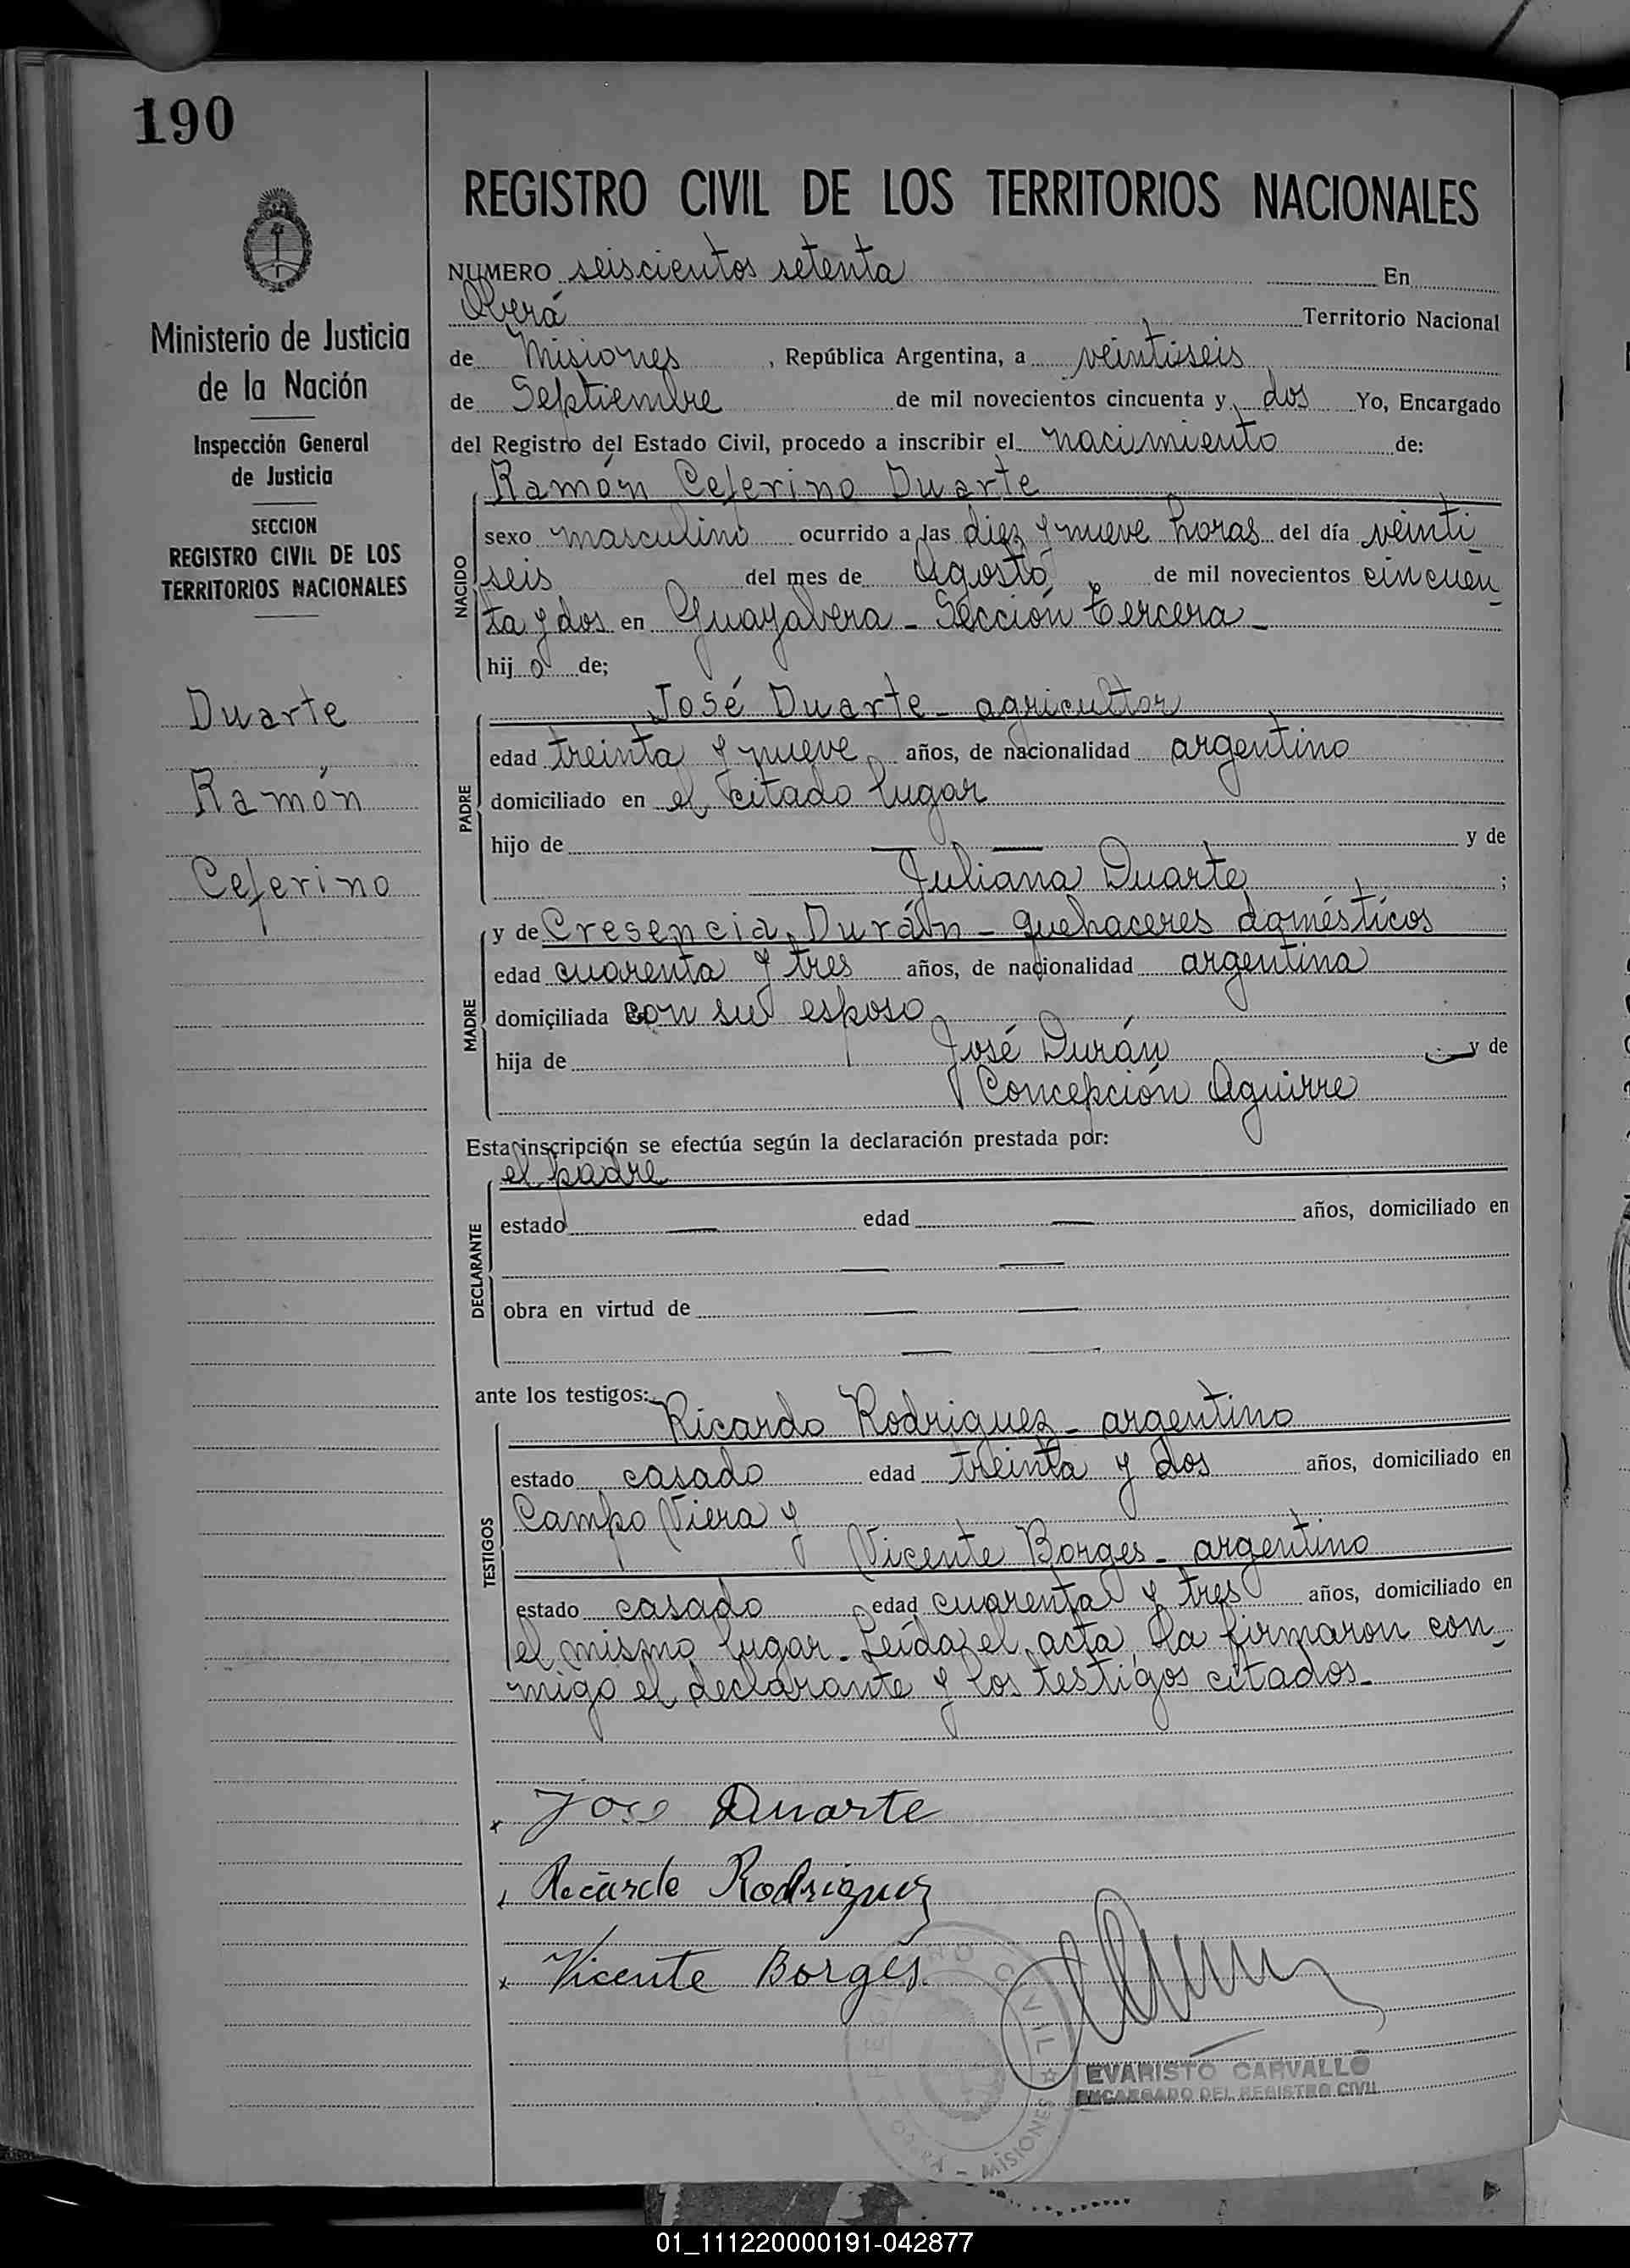 190
Ministerio de Justicia
de la Nación
Inspección General
de Justicia
SECCION
REGISTRO CIVIL DE LOS
TERRITORIOS NACIONALES
Duarte
Ramón
Ceferino
REGISTRO CIVIL DE LOS TERRITORIOS NACIONALES
NUMERO seiscientos setenta En
Oberá Territorio Nacional
de Misiones, República Argentina, a veintiseis
de Septiembre de mil novecientos cincuenta y dos Yo, Encargado
del Registro del Estado Civil, procedo a inscribir el nacimiento de:
Ramón Ceferino Duarte
NACIDO
sexo masculino ocurrido a las diez y nueve horas del día veinti
seis del mes de Agosto de mil novecientos cincuen
ta y dos en Guayabera - Sección tercera -
hijo de;
PADRE
José Duarte - agricultor
edad treinta y nueve años, de nacionalidad argentino
domiciliado en el citado lugar
hijo de — — y de
Juliana Duarte ;
MADRE
y de Cresencia Durán - quehaceres domésticos
edad cuarenta y tres años, de nacionalidad argentina
domiciliada con su esposo
hija de José Durán y de
Concepción Aguirre
Esta inscripción se efectúa según la declaración prestada por:
el padre
DECLARANTE
estado — edad — años, domiciliado en
— —
obra en virtud de — —
— —
ante los testigos:
TESTIGOS
Ricardo Rodriguez - argentino
estado casado edad treinta y dos años, domiciliado en
Campo Viera y
Vicente Borges - argentino
estado casado edad cuarenta y tres años, domiciliado en
el mismo lugar. Leída el acta la firmaron con-
migo el declarante y los testigos citados.-
x Jose Duarte
x Ricardo Rodriguez
x Vicente Borges.
REGISTRO CIVIL
OBERÁ - MISIONES
EVARISTO CARVALLO
ENCARGADO DEL REGISTRO CIVIL
01_111220000191-042877